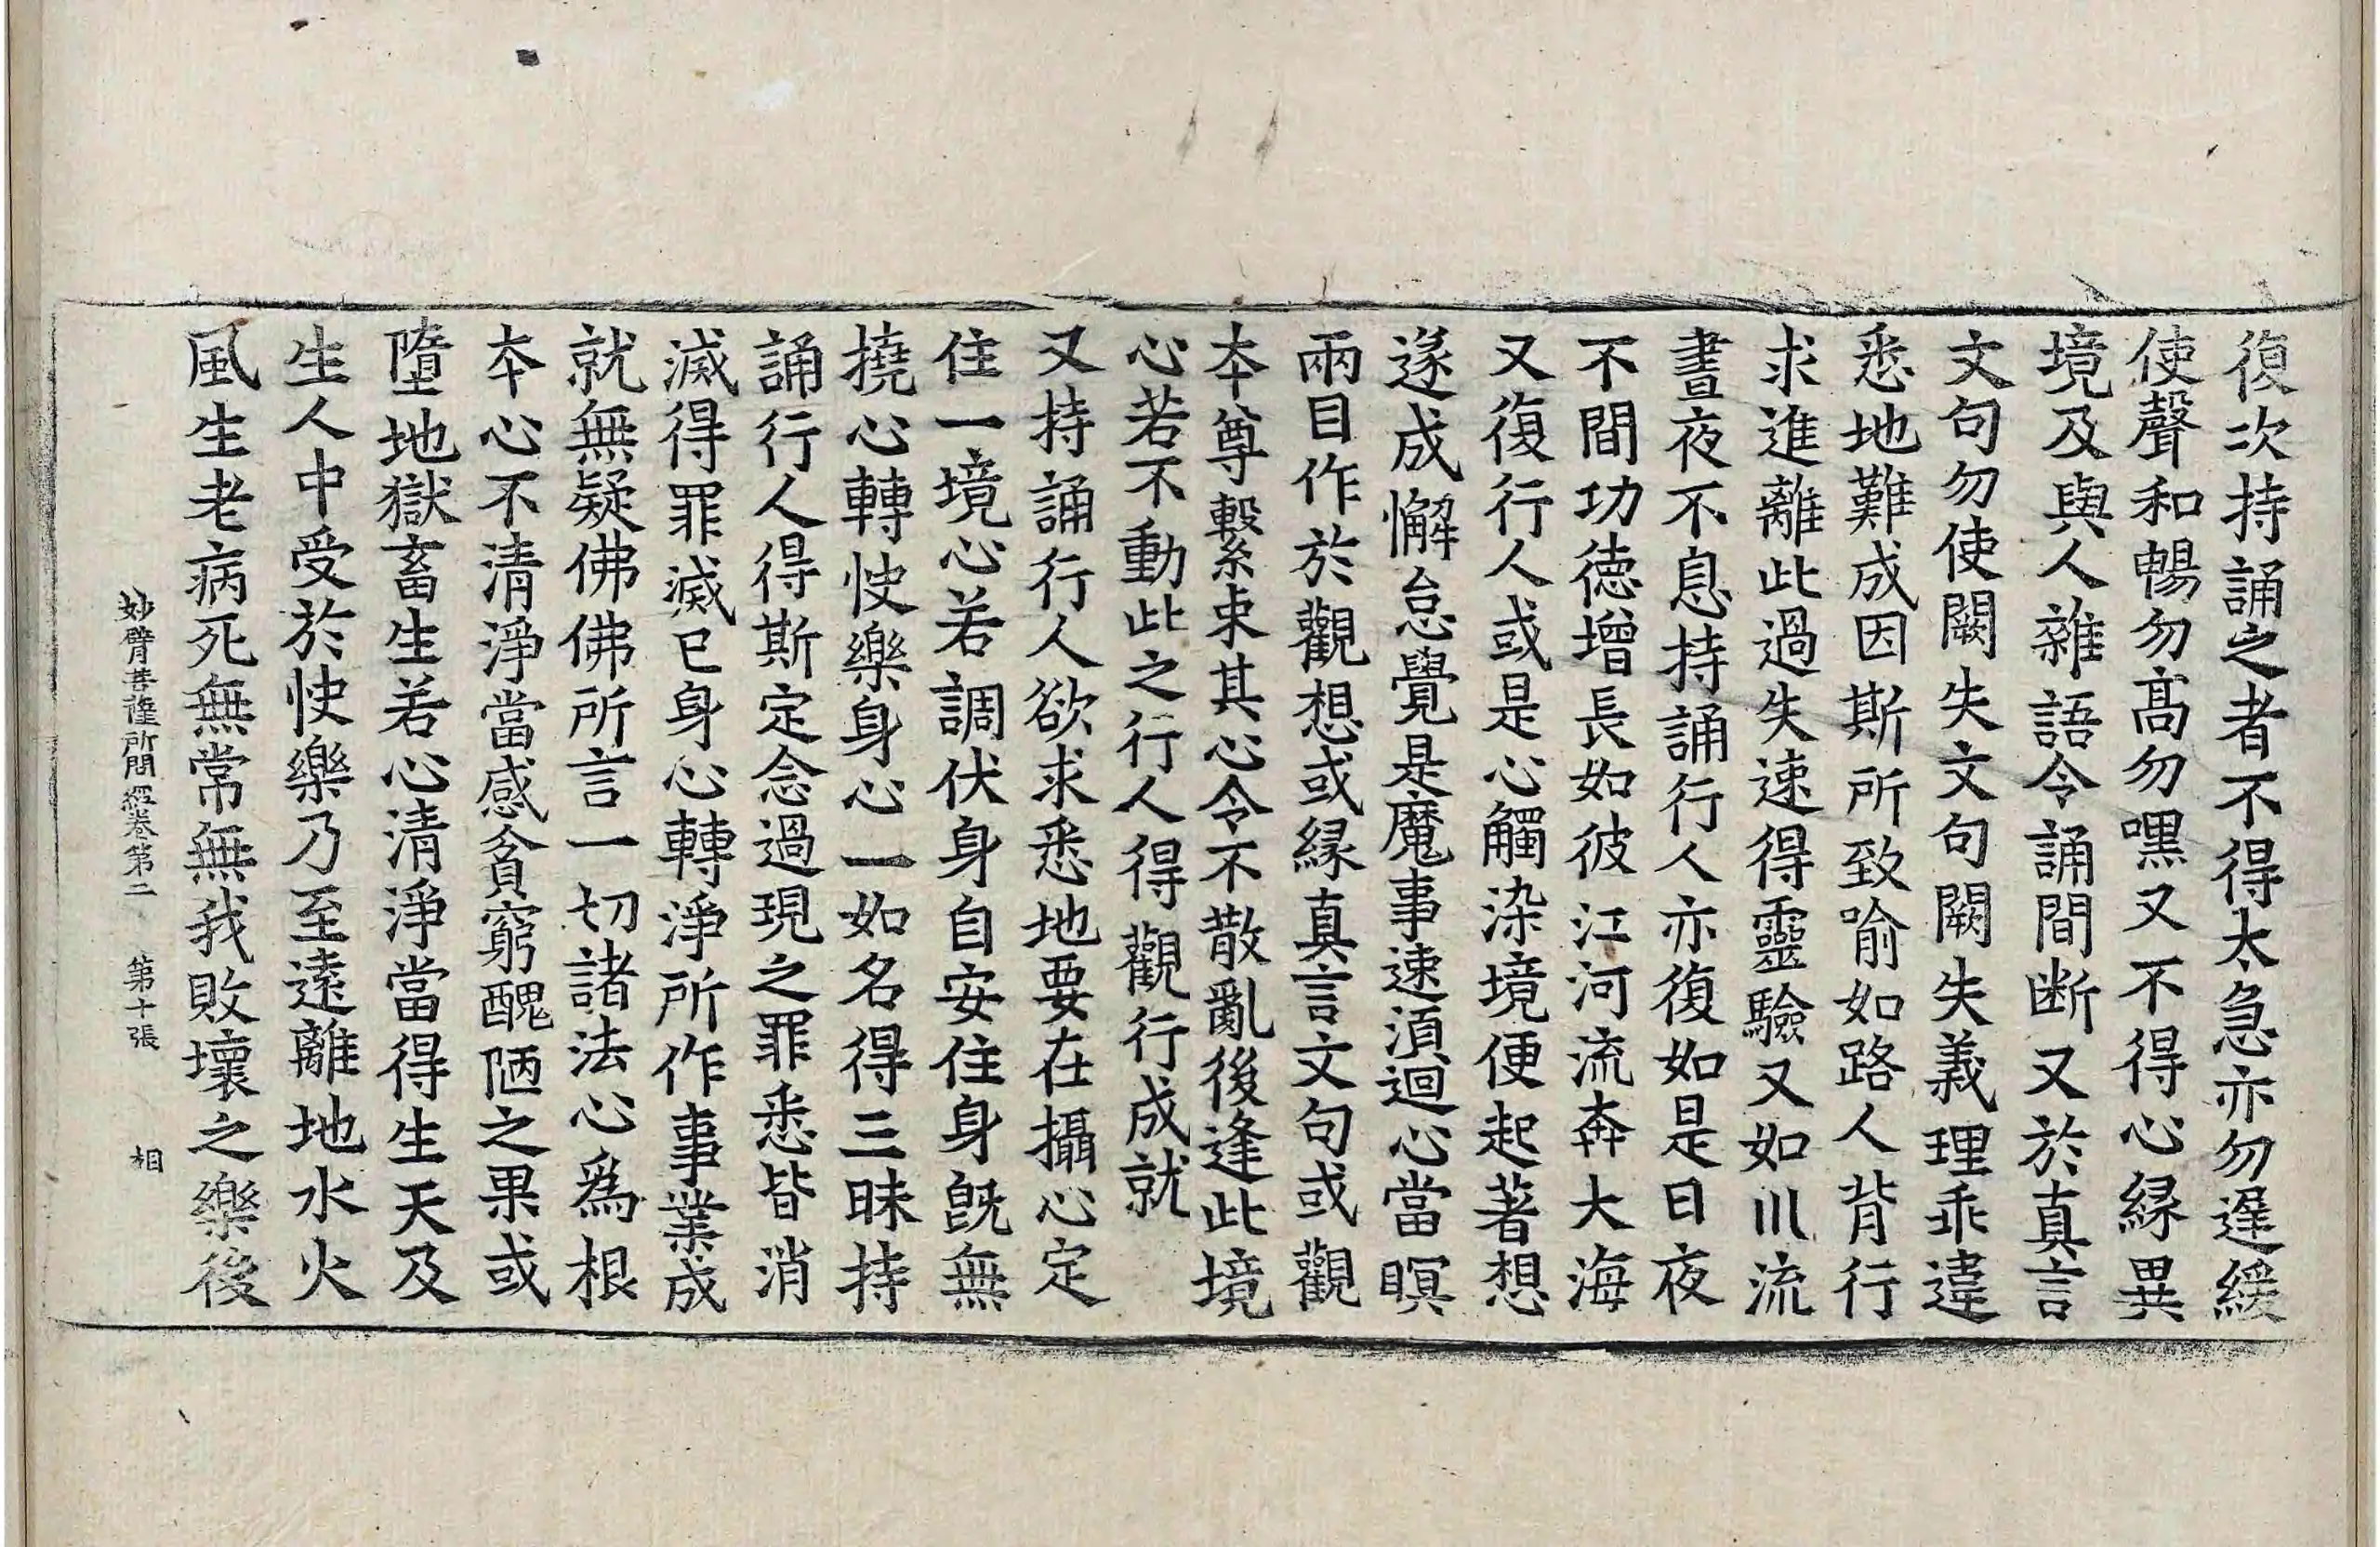 復次持誦之者不得太急亦勿遲緩
使聲和暢勿高勿嘿又不得心緣異
境及與人雜語令誦間断又於真言
文句勿使闕失文句闕失義理乖違
悉地難成因斯所致喻如路人背行
求進離此過失速得靈驗又如川流
晝夜不息持誦行人亦復如是日夜
不間功德增長如彼江河流奔大海
又復行人或是心觸染境便起著想
遂成懈怠覺是魔事速湏迴心當瞑
兩目作於觀想或緣真言文句或觀
本尊繫束其心令不散亂後逢此境
心若不動此之行人得觀行成就
又持誦行人欲求悉地要在攝心定
住一境心若調伏身自安住身旣無
撓心轉快樂身心一如名得三昧持
誦行人得斯定念過現之罪悉皆消
滅得罪滅已身心轉淨所作事業成
就無疑佛佛所言一切諸法心爲根
本心不清淨當感貧窮醜陋之果或
墮地獄畜生若心清淨當得生天及
生人中受於快樂乃至遠離地水火
風生老病死無常無我敗壞之樂後
妙臂菩薩所問經卷第二　第十張　相